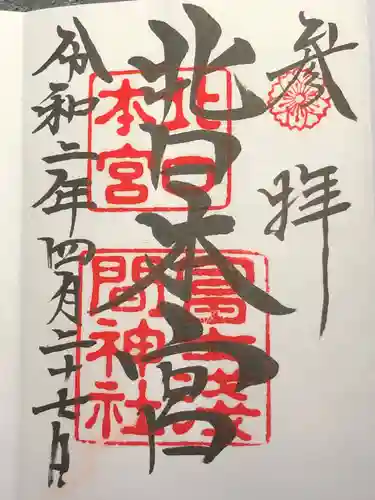 参拝
北口本宮
北口
本宮
冨士淺
間神社
令和二年四月二十七日